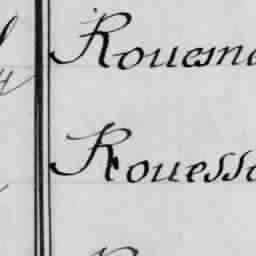 Rouesne
Rouesse